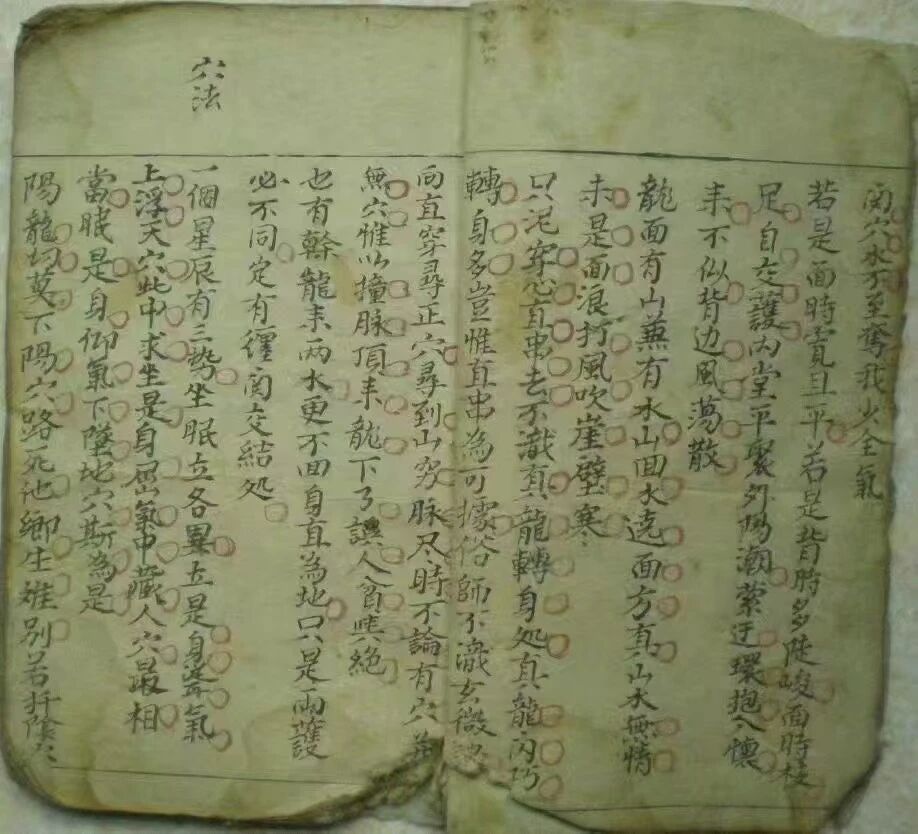 向穴水不至奪我少全氣
若是面時寬且平若是背時多陡峻面時棱
足自交護內堂平聚外陽潮縈迂環抱入懷
耒不似背边風蕩散
龍面有山兼有水山回水遶面方真山水無情
耒是面浪打風吹崖壁寒
只泥穿心直串去不識真龍轉身处真龍內巧
轉身多豈惟直串為可據俗師不識玄微
向直穿尋正穴尋到山穷脉尽時不論有穴并
無穴惟以撞脉頂耒龍下了誤人貧與絕
也有幹龍耒兩水更不回身直為地只是兩護
必不同定有纏向交結処
穴法
一個星辰有三勢坐眠立各異立是身聳氣
上浮天穴此中求坐是身屈氣中藏人穴最相
當眠是身仰氣下墜地穴斯為是
陽龍切莫下陽穴路死他鄉生难别若扦陰